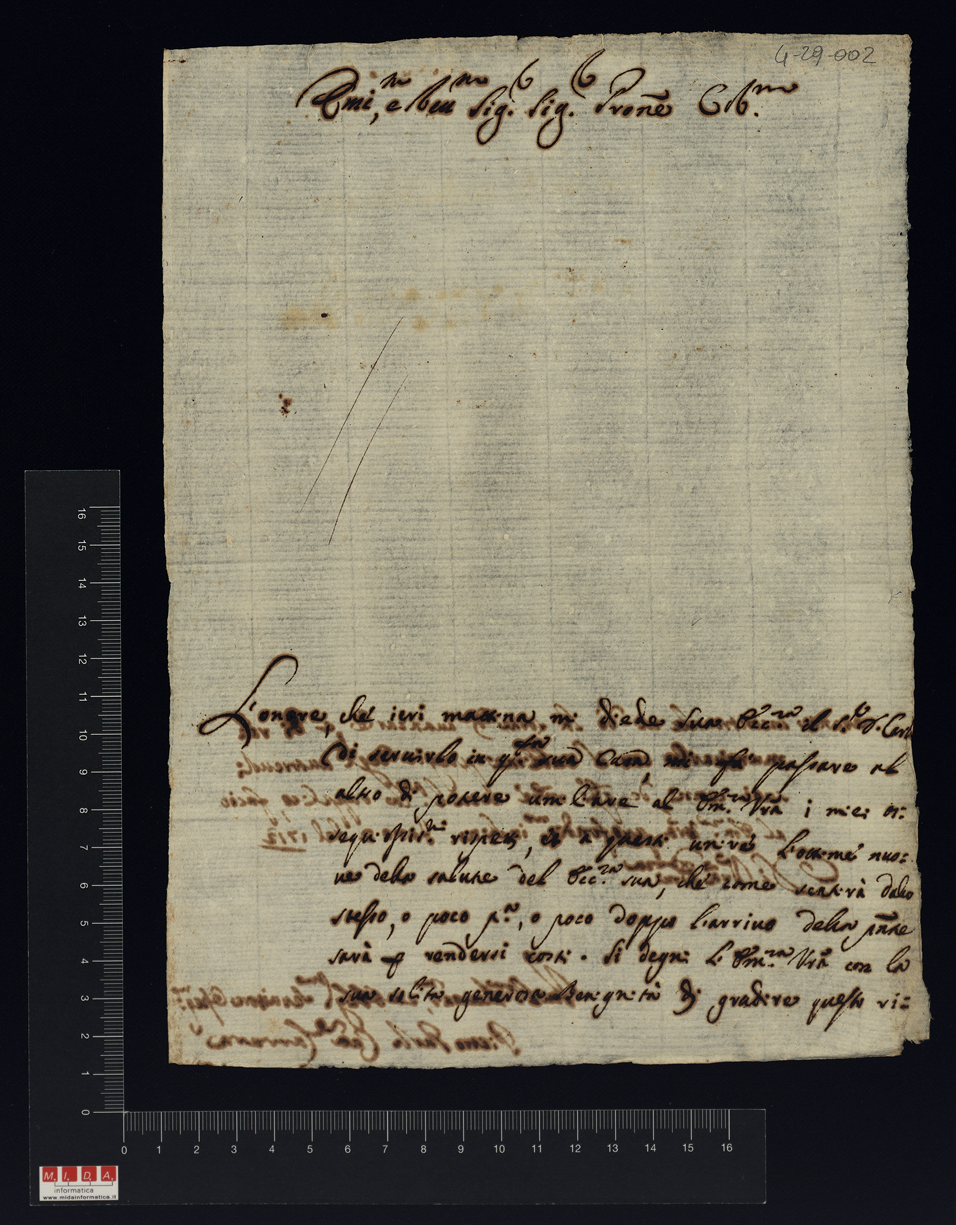 4-29-002
Emi,ⁿ e Reuᵐ Sig.ʳ Sig.ʳ Prone Colᵐᵒ.
L'onore, che' ieri mattina mi diede sua Ecc.ᶻᵃ il S.ʳ D. Carl
di seruirlo in qᵗᵃ sua Casa, mi fa' passare al
altro di potere umiliare al Em.ᶻᵃ Vrã i miei os:
sequiosiss.ᵐⁱ rispetti, et a questi unire' l'ottime' nuo:
ue della salute del Ecc.ᶻᵃ sua, che' come sentirà dallo
stesso, o poco pᵃ, o poco doppo l'arriuo della pñte
sarà p rendersi costi. Si degni l'Em.ᶻᵃ Vrã con la
sua solita generosa Benignità di gradire questi ri:
16 15 14 13 12 11 10 9 8 7 6 5 4 3 2 1 0
0 1 2 3 4 5 6 7 8 9 10 11 12 13 14 15 16
M. I. D. A.
informatica
www.midainformatica.it